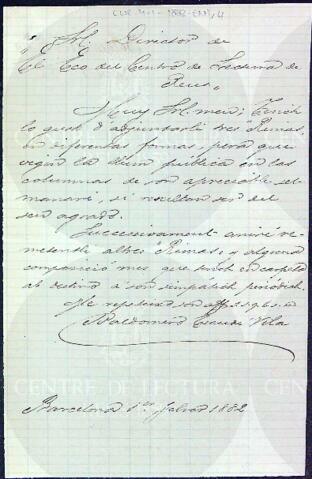 Sr. Director de
El Eco del Centro de Lectura de
Reus.
Muy Sr. meu; Tinch
lo gust d'adjuntarli tres Rimas,
en diferentas formas, pera que
vegin la llum pública en las
columnas de son apreciable set-
manari, si resultan ser del
seu agrado.
Successivament aniré re-
metentli altres Rimas, y alguna
composició mes que tinch en carpeta
ab destino á son simpátich periódich.
Se repeteix son
Baldomero Vila
Barcelona 1er Febrer 1882
CENTRE DE LECTURA